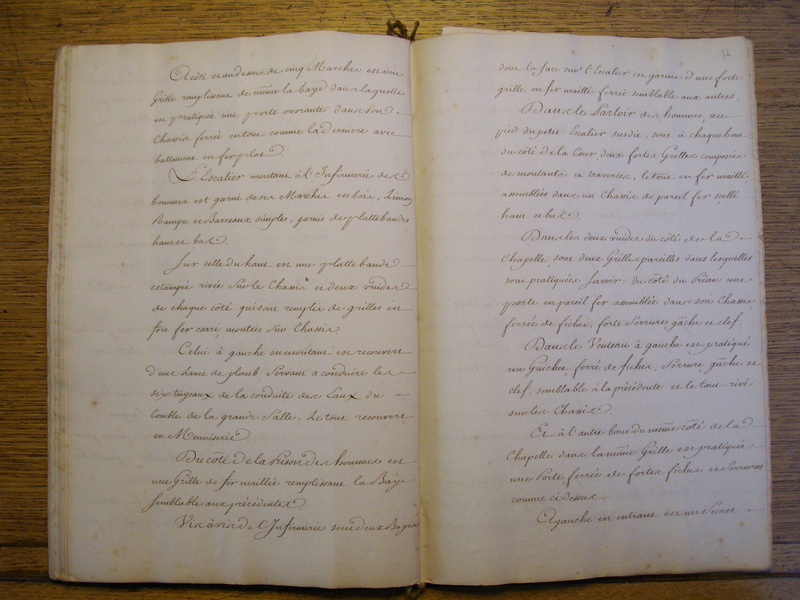 A côté et au dessus de cinq Marches est une
Grille remplissant de même la baye dans laquelle
est pratiquée une porte ouvrante dans son
Chassis ferré en tout comme la derniere avec
battement en fer plat
L'Escalier montant à l'Infirmerie des
hommes est garni de ses Marches en bois, Limon
Rampe et Barreaux simples, garnis de plattebandes
haut et bas
Sur celle du haut est une plattebande
estampée rivée sur le Chassis et deux vuides
de chaque côté qui sont remplis de grilles en
fort fer carré, montées sur Chassis
Celui à gauche en montant est recouvert
d'une Lame de plomb servant a conduire les
six tuyaux de la conduite des Eaux du
Comble de la grande Salle. Le tout recouvert
en Menuiserie
Du côté de la Prison des hommes est
une Grille de fer maillée remplissant la Baye
semblable aux précédentes
Vis à vis de l'Infirmerie sont deux Bayes
34
dont la face sur l'Escalier est garnie d'une forte
grille en fer maillé ferrée semblable aux autres.
Dans le Parloir des hommes, au
pied du petit Escalier susdit, sont à chaque bout
du côté de la Cour, deux fortes Grilles composées
de montants et traverses, le tout en fer maillé,
assemblées dans un Chassis de pareil fer scellé
haut et bas
Dans les deux vuides du côté de la
Chapelle sont deux Grilles pareilles dans lesquelles
sont pratiquées savoir: du côté du Préau une
porte en pareil fer assemblée dans son Chassis,
ferrée de fiches, forte Serrure, gâche et clef.
Dans le Venteau à gauche est pratiqué
un Guichet, ferré de fiches, Serrure, gâche et
clef, semblable à la précédente et le tout rivé
sur les Chassis
Et à l'autre bout du même côté de la
Chapelle dans la même Grille est pratiquée
une Porte ferrée de fortes fiches et Serrures
comme ci dessus
A gauche en entrant est un